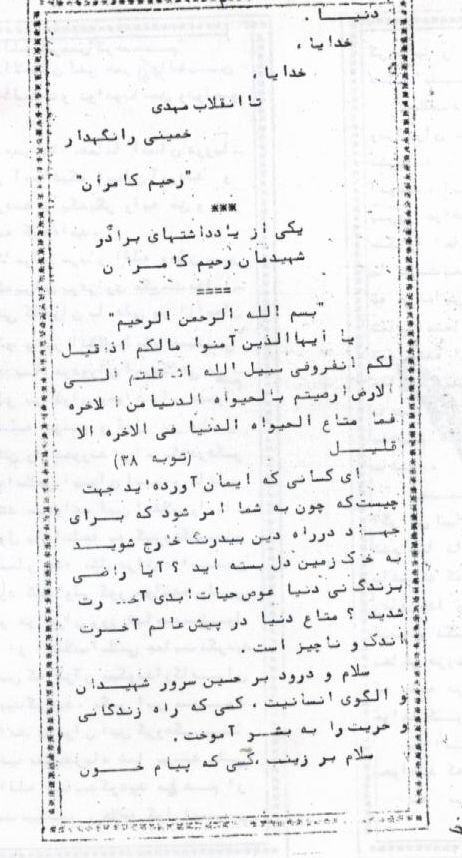 دنیا .
خدایا ،
خدایا ،
تا انقلاب مهدی
خمینی را نگهدار
"رحیم کامران"
***
یکی از یادداشتهای برادر
شهیدمان رحیم کامران
====
"بسم الله الرحمن الرحیم"
یا ایها الذین آمنوا مالکم اذ قیل
لکم انفروفی سبیل الله اثاقلتم الـــی
الارض ارضیتم بالحیواه الدنیا من الاخره
فما متاع الحیواه الدنیا فی الاخره الا
قلیـــل (توبه ۳۸)
ای کسانی که ایمان آورده اید جهت
چیست که چون به شما امر شود که بـــرای
جهاد درراه دین بیدرنگ خارج شویـــد
به خاک زمین دل بسته اید ؟ آیا راضی
بزندگانی دنیا عوض حیات ابدی آخرت
شدید ؟ متاع دنیا در پیش عالم آخـرت
اندک و ناچیز است .
سلام و درود بر حسین سرور شهیـــدان
و الگوی انسانیت ، کسی که راه زندگانی
و حریت را به بشـــر آموخت .
سلام بر زینب ،کسی که پیام خـــون